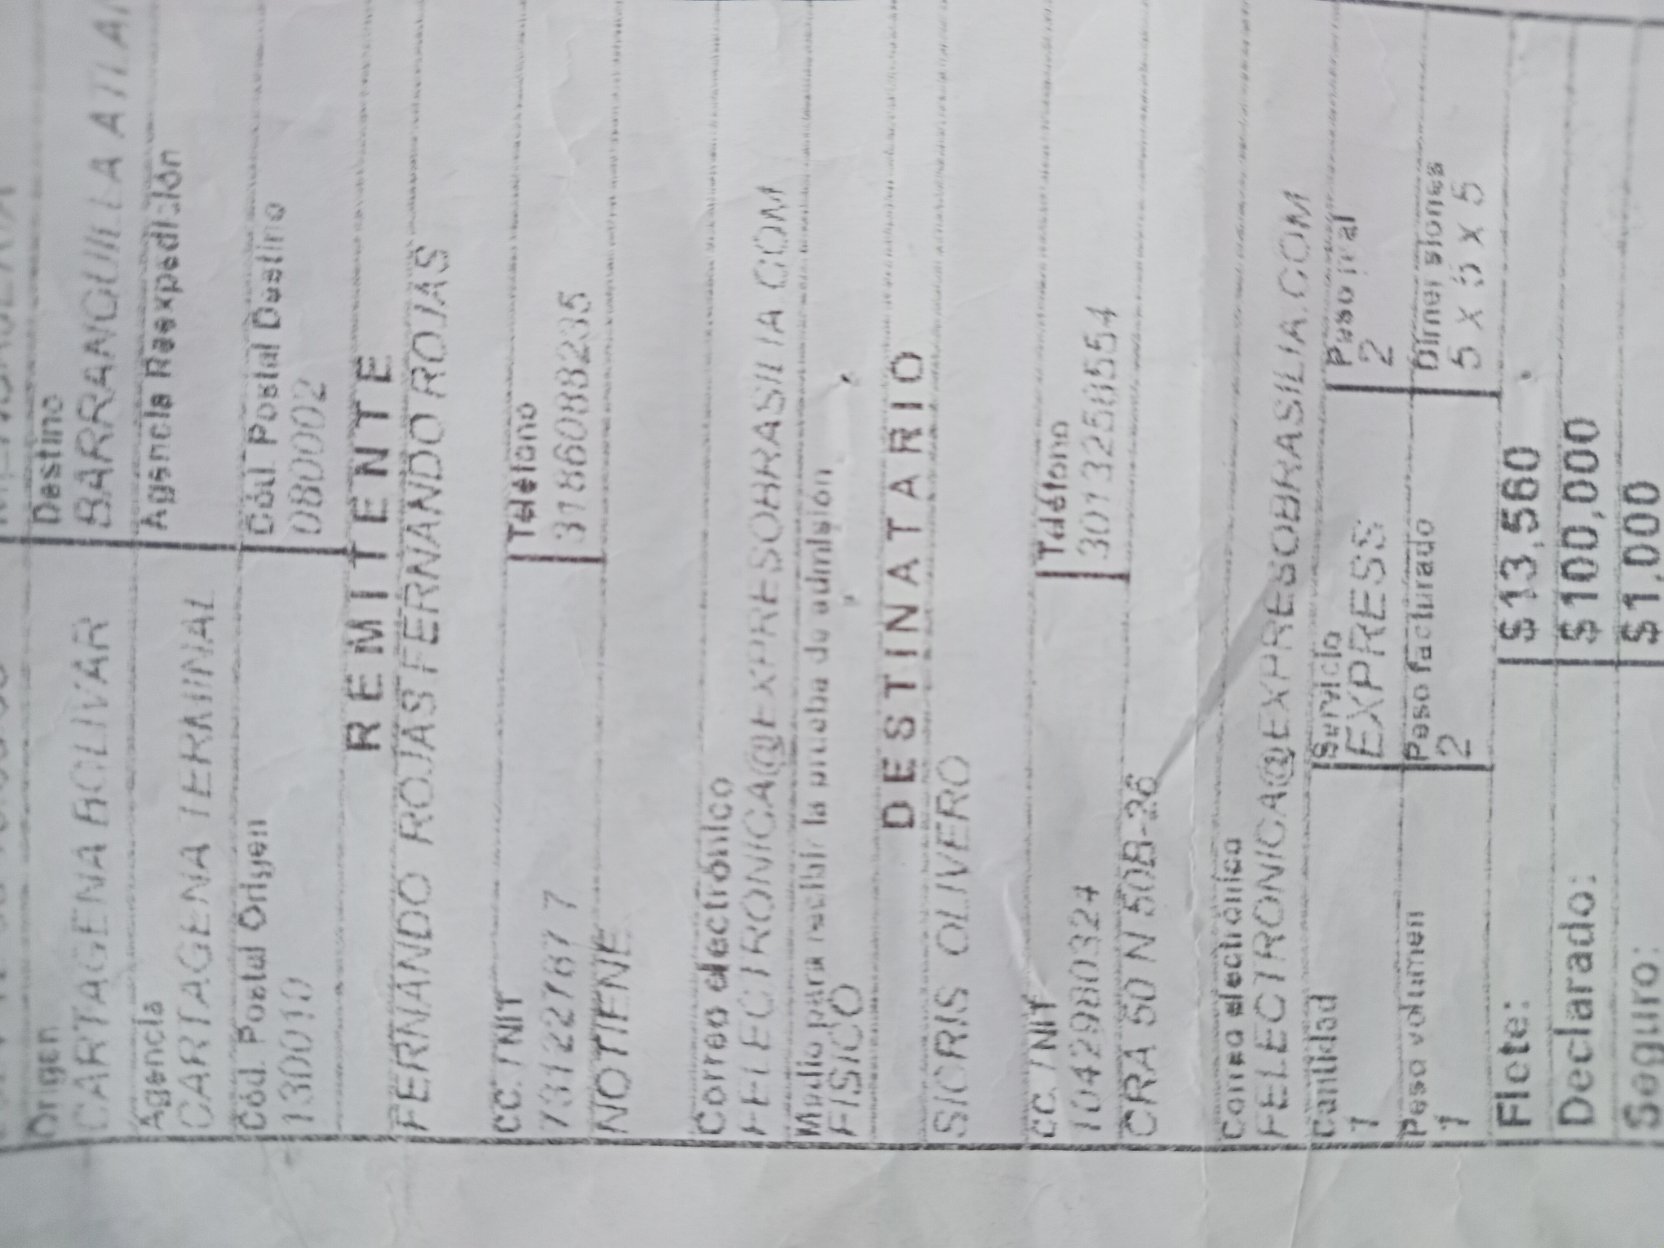 Origen Destino
CARTAGENA BOLIVAR BARRANQUILLA
Agencia Agencia Reexpedición
CARTAGENA TERMINAL
Cód. Postal Origen Cód. Postal Destino
130010 080002
REMITENTE
FERNANDO ROJAS FERNANDO ROJAS
CC. / NIT Teléfono
3186088235
NOTIENE
Correo electrónico
FELECTRONICA@EXPRESOBRASILIA.COM
Medio para recibir la prueba de admisión
FISICO
DESTINATARIO
SICRIS OLIVERO
CC. / NIT Teléfono
1042980324 3013258554
CRA 50 N 50B-26
Correo electrónico
FELECTRONICA@EXPRESOBRASILIA.COM
Cantidad Servicio Peso real
1 EXPRESS 2
Peso volumen Peso facturado Dimensiones
1 2 5 x 5 x 5
Flete: $13,560
Declarado: $100,000
Seguro: $1,000